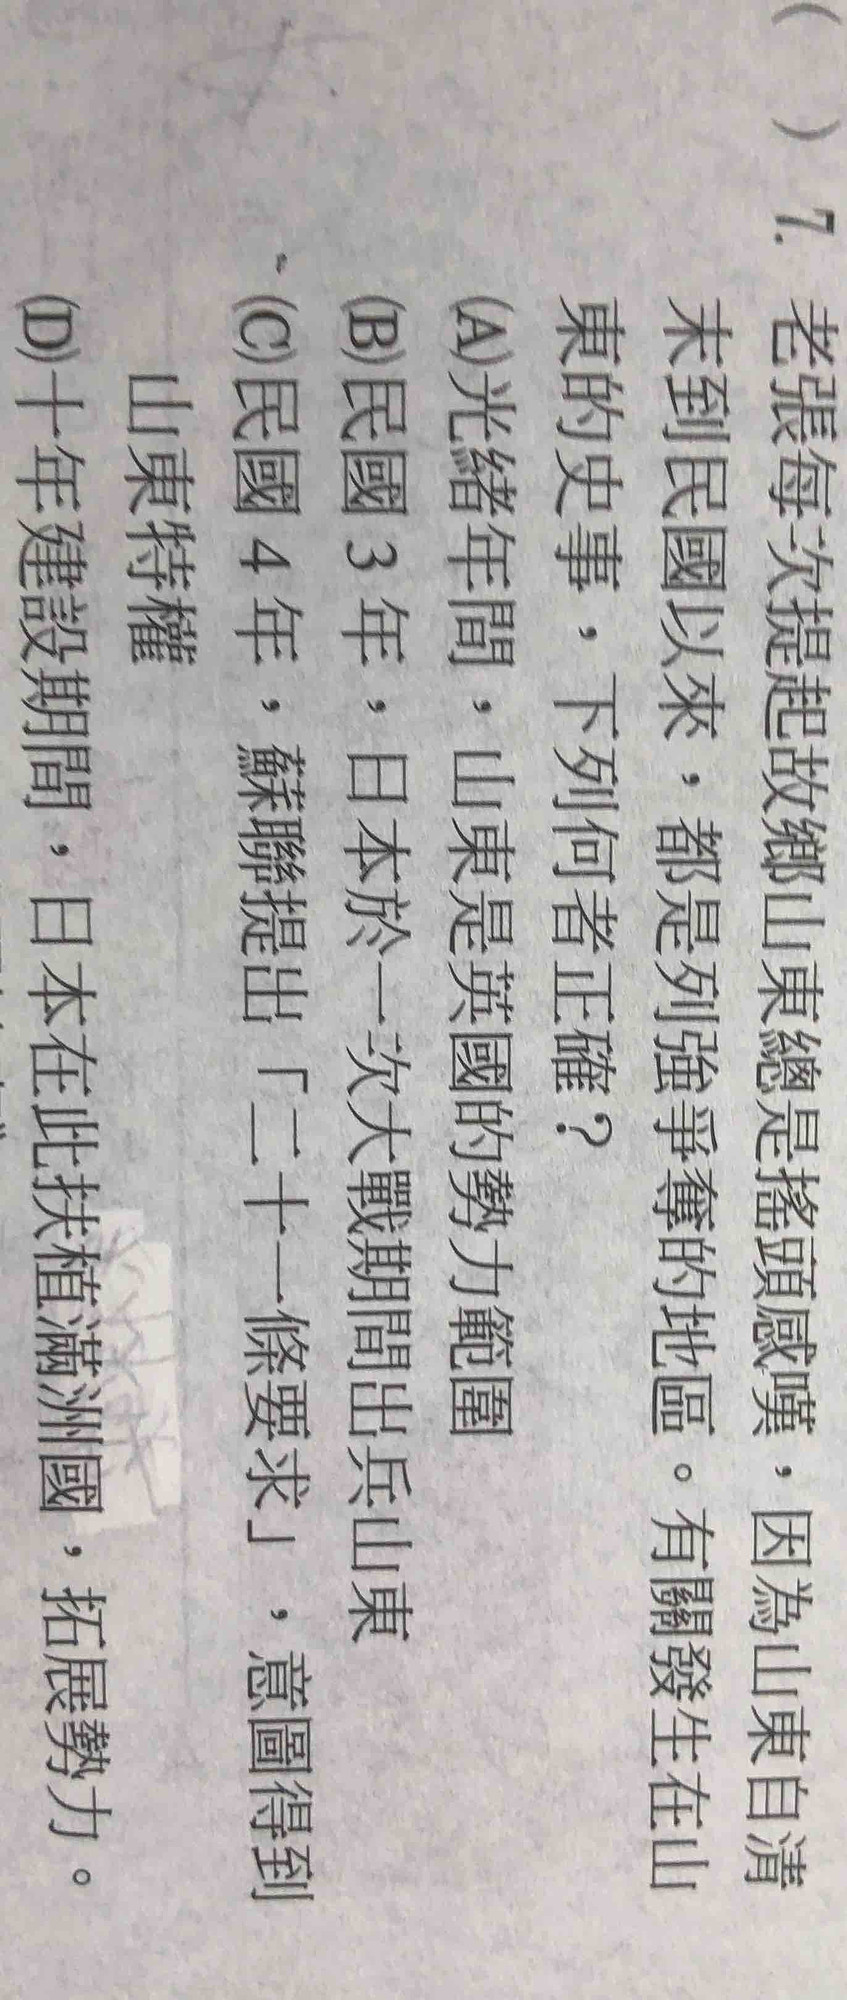 (　)7. 老張每次提起故鄉山東總是搖頭感嘆，因為山東自清
末到民國以來，都是列強爭奪的地區。有關發生在山
東的史事，下列何者正確？
(A)光緒年間，山東是英國的勢力範圍
(B)民國 3 年，日本於一次大戰期間出兵山東
(C)民國 4 年，蘇聯提出「二十一條要求」，意圖得到
山東特權
(D)十年建設期間，日本在此扶植滿洲國，拓展勢力。